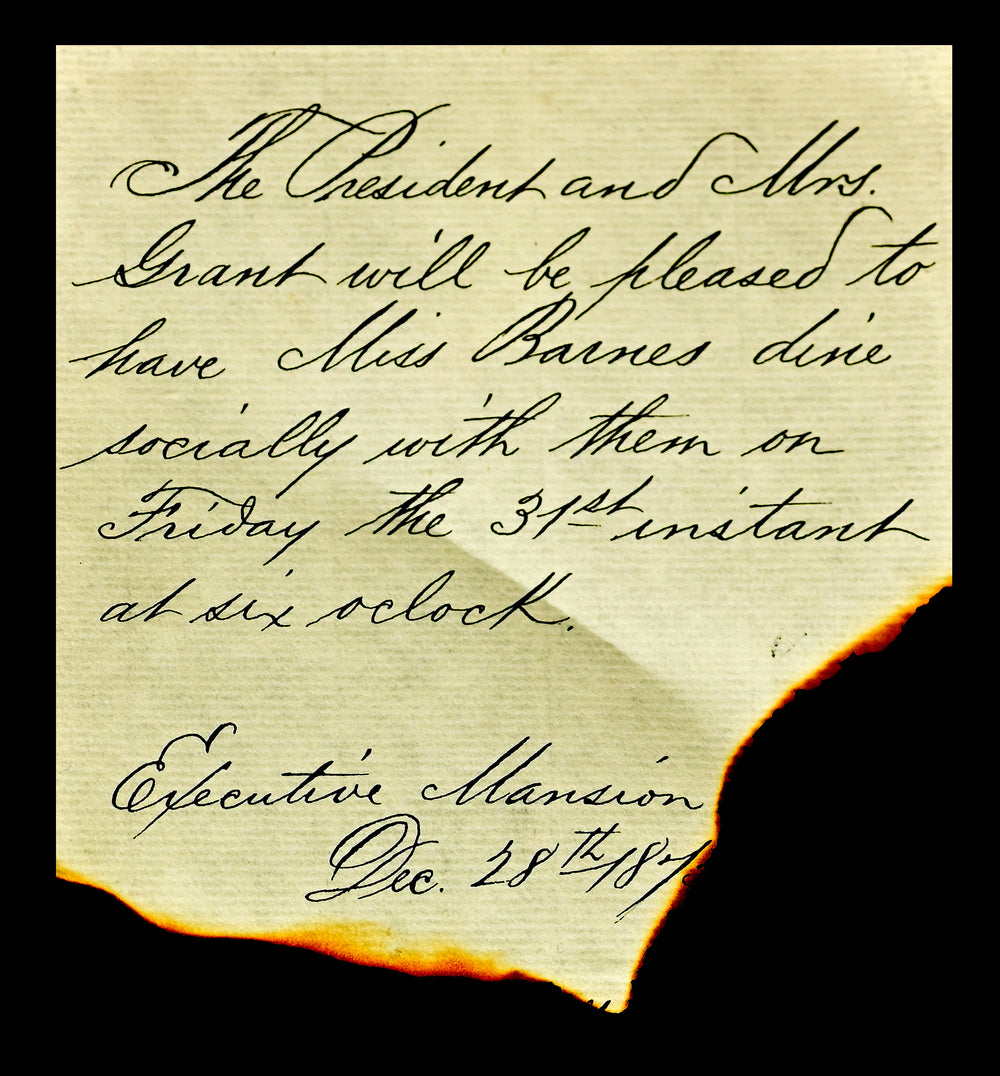 The President and Mrs.
Grant will be pleased to
have Miss Barnes dine
socially with them on
Friday the 31st instant
at six oclock.
Executive Mansion
Dec. 28th 187